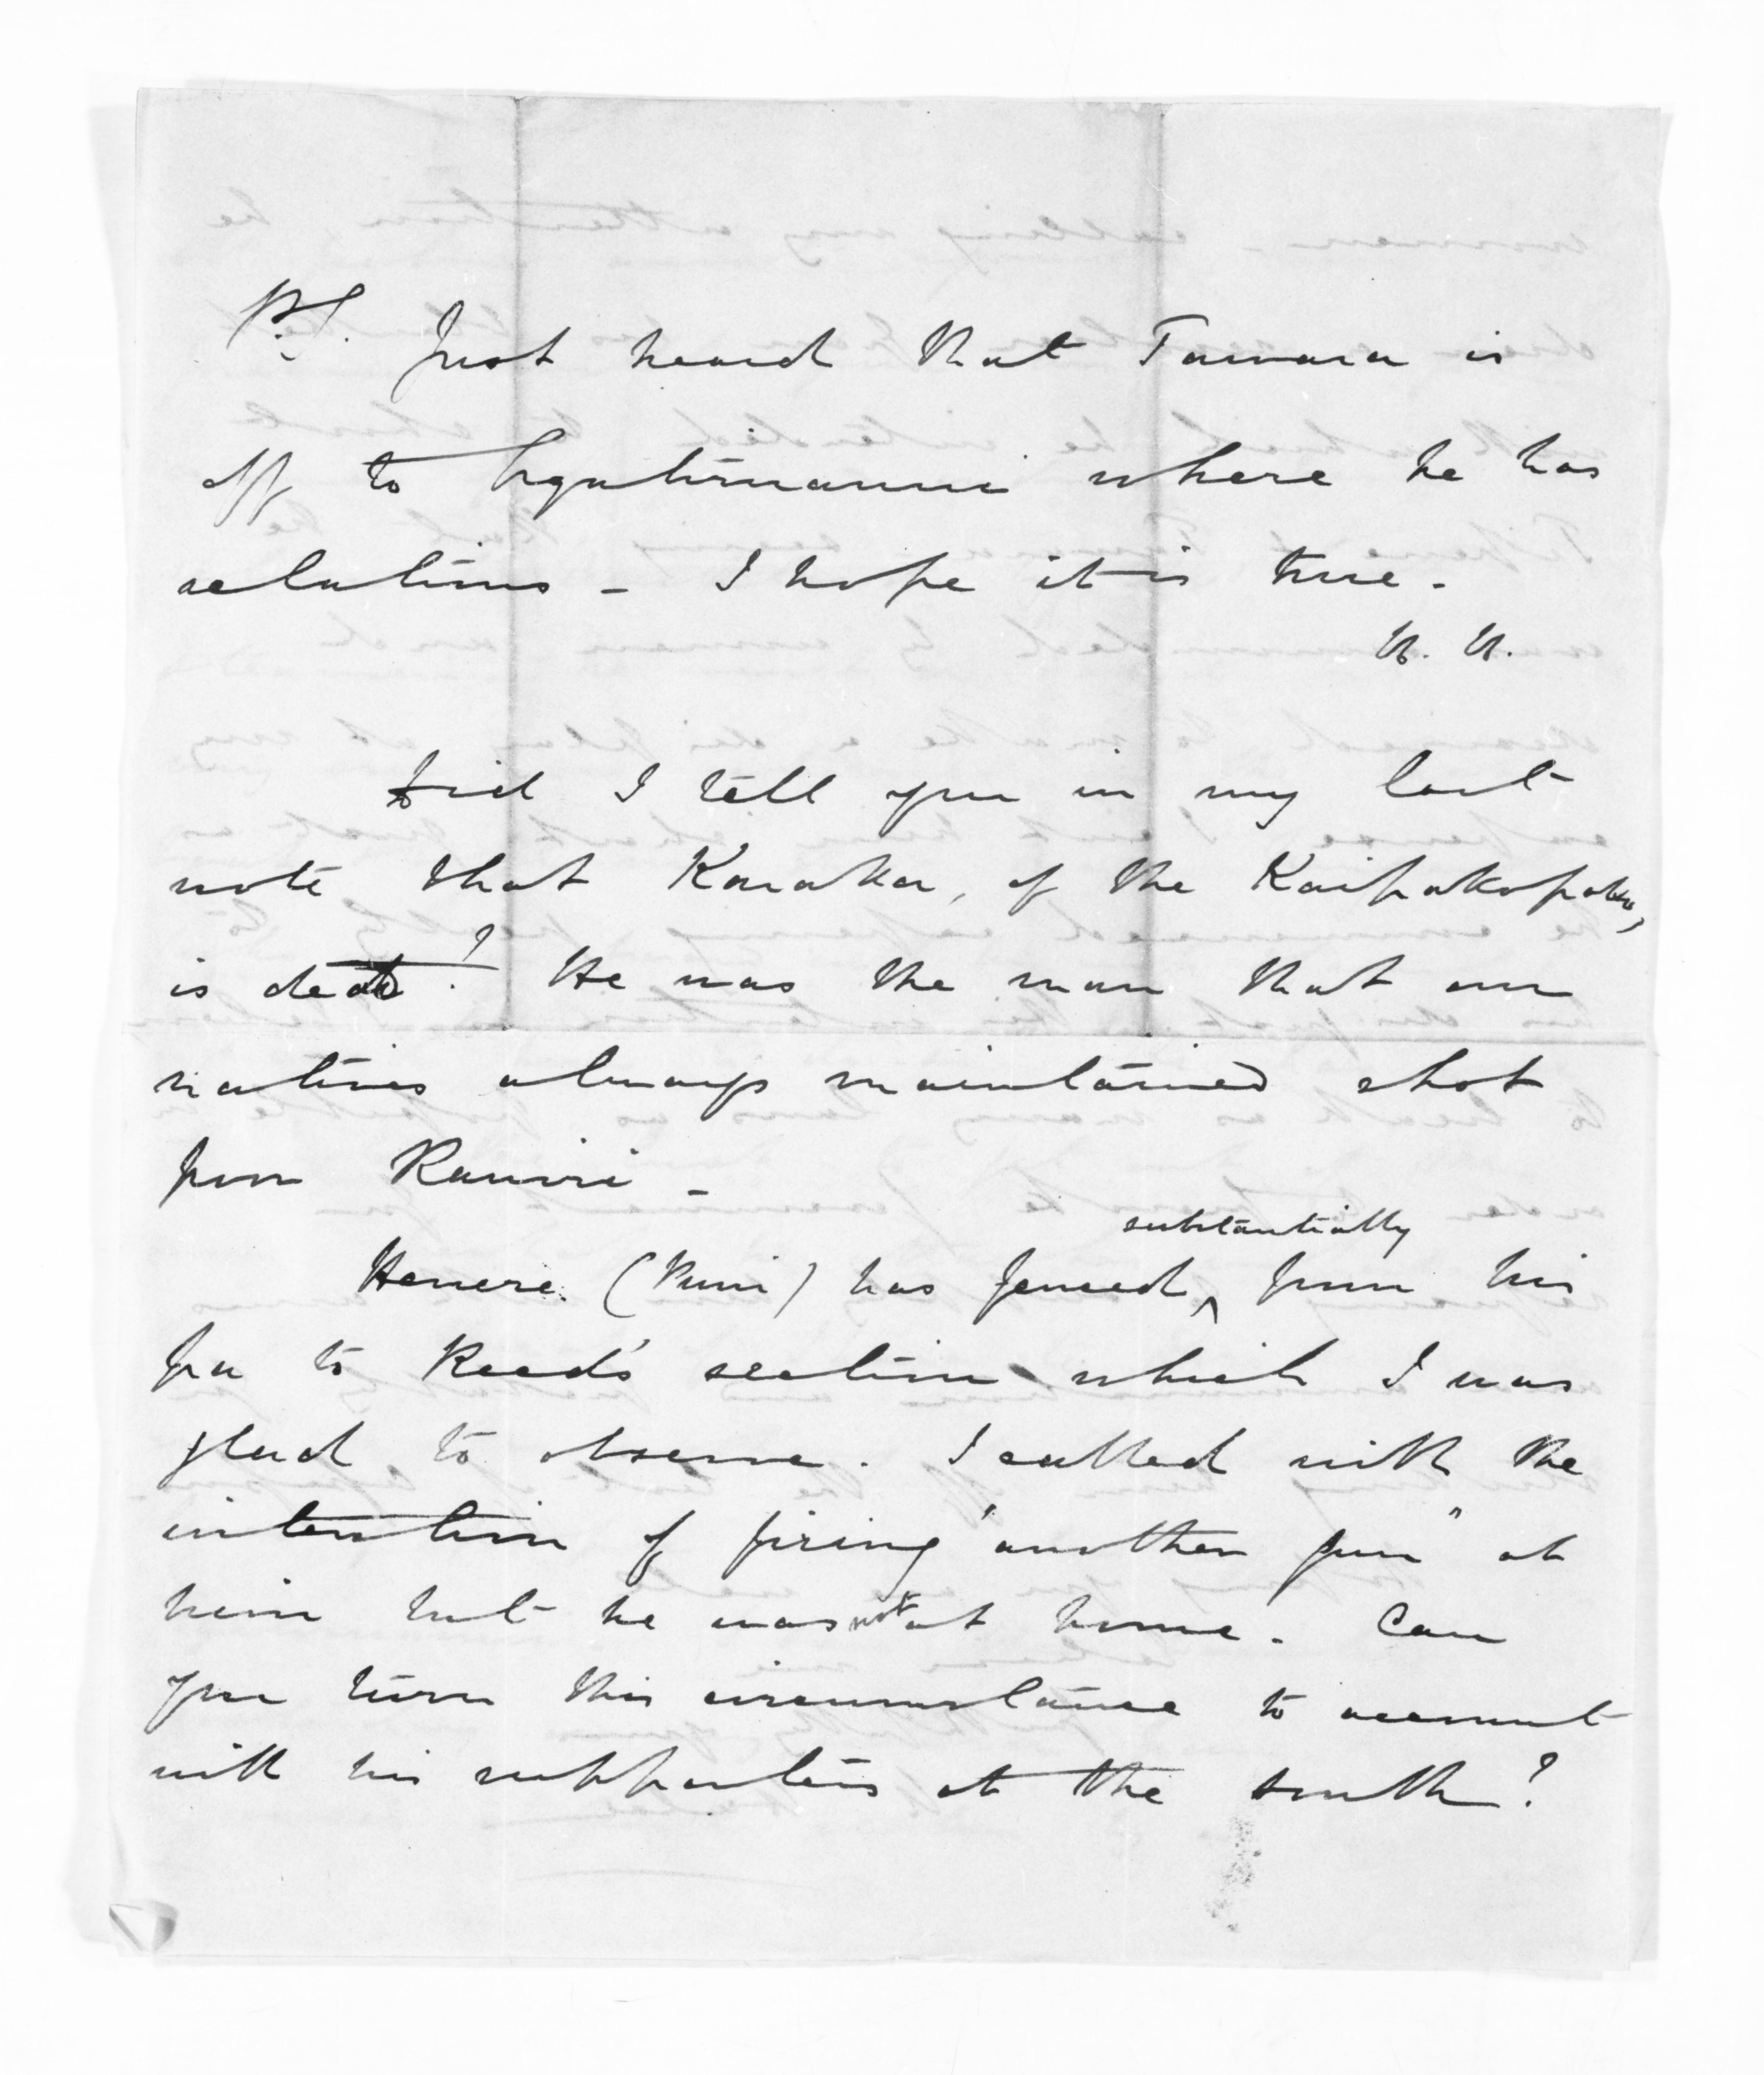 P.S. Just heard that Tamara is
off to Ngatiruanui where he has
relations - I hope it is true.
H. H.
Did I tell you in my last
note that Karaka, of the Kaipakopako,
is dead? He was the man that our
natives always maintained shot
poor Rawiri -
Henere (Puni) has fenced substantially from his
pa to Reed's section which I was
glad to observe. I called with the
intention of firing "another gun" at
him but he was not at home. Can
you turn this circumstance to account
with his supporters at the south?